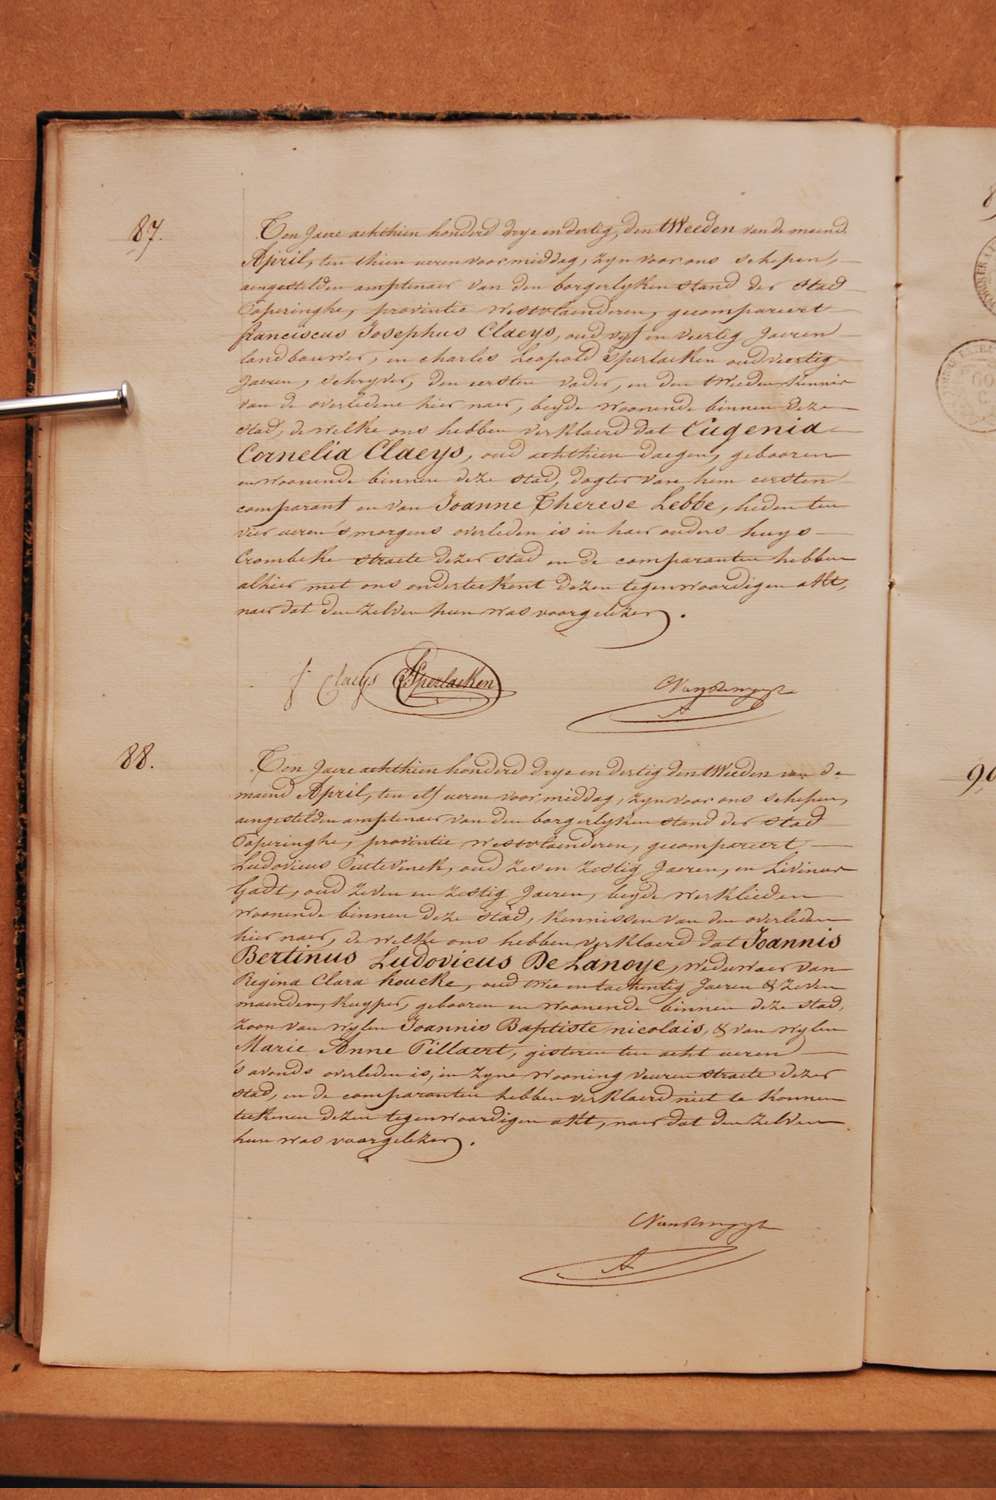 87.
Ten Jaere achthien honderd drye en dertig, den Tweeden van de maend
April, ten thien ueren voormiddag, zyn voor ons schepen,
aengestelden amptenaer van den borgerlyken stand der stad
Poperinghe, provintie westvlaenderen, gecompareert
franciscus Josephus Claeys, oud vyf en veertig Jaeren
landbouwer, en charles Leopold Sperlaeken oud veertig
Jaeren, schryver, den eersten vader, en den tweeden kennis
van de overledene hier naer, beyde woonende binnen deze
stad, de welke ons hebben verklaerd dat Eugenia
Cornelia Claeys, oud achthien daegen, gebooren
en woonende binnen deze stad, dogter van hem eersten
comparant en van Joanne Therese Lebbe, heden ten
vier ueren s'morgens overleden is in haer ouders huys
Crombeke straete dezer stad en de comparanten hebben
alhier met ons onderteekent dezen tegenwoordigen akt,
naer dat den zelven hun was voorgelezen.
f Claeys CLSperlaeken
88.
Ten Jaere achthien honderd drye en dertig den tweeden van de
maend April, ten elf ueren voormiddag, zyn voor ons schepen,
aengestelden amptenaer van den borgerlyken stand der stad
Poperinghe, provintie westvlaenderen, gecompareert,
Ludovicus oud zes en zestig Jaeren, en Livinus
Gadt, oud zeven en zestig Jaeren, beyde werklieden
woonende binnen deze stad, kennissen van den overleden
hier naer, de welke ons hebben verklaerd dat Joannis
Bertinus Ludovicus De Lanoye, weduwaer van
Regina Clara houcke, oud twee en tachentig Jaeren & zeven
maenden, kuyper, gebooren en woonende binnen deze stad,
zoon van wylen Joannis Baptiste nicolais, & van wylen
Marie Anne Pillaert, gisteren ten acht ueren
s'avonds overleden is, in zyne wooning veuren straete dezer
stad, en de comparanten hebben verklaerd niet te konnen
teekenen dezen tegenwoordigen akt, naer dat den zelven
hun was voorgelezen.
90